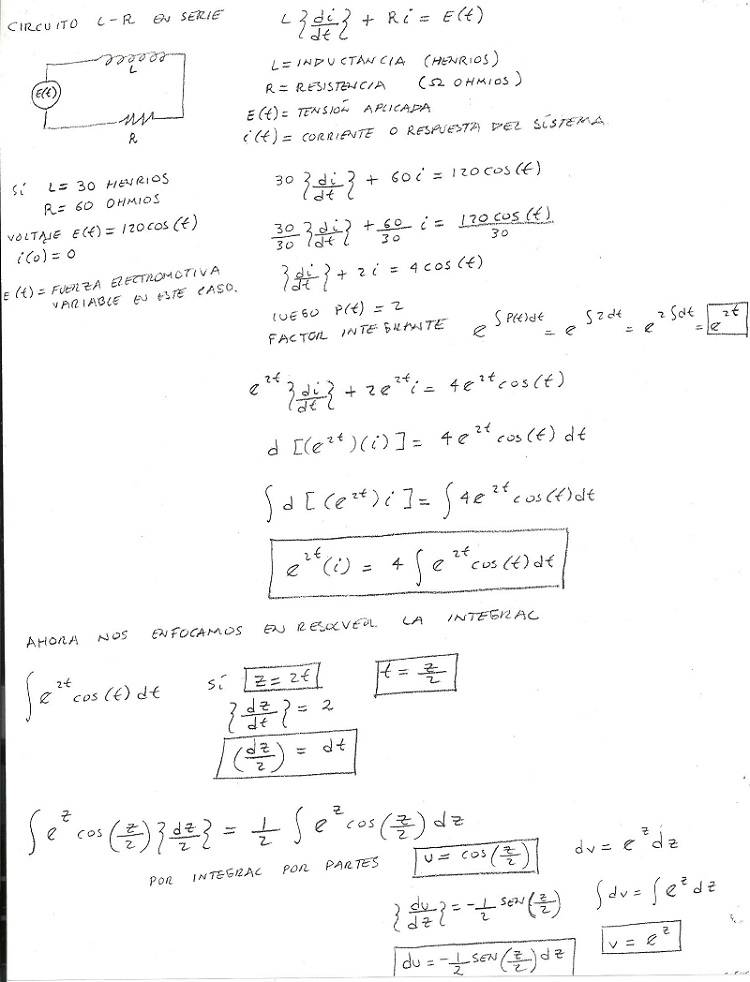 CIRCUITO L-R EN SERIE
L {di/dt} + Ri = E(t)
L
E(t)
R
L = INDUCTANCIA (HENRIOS)
R = RESISTENCIA (Ω OHMIOS)
E(t) = TENSIÓN APLICADA
i(t) = CORRIENTE O RESPUESTA DEL SISTEMA
SI L = 30 HENRIOS
R = 60 OHMIOS
VOLTAJE E(t) = 120 cos(t)
i(0) = 0
E(t) = FUERZA ELECTROMOTIVA
VARIABLE EN ESTE CASO.
30 {di/dt} + 60i = 120 cos(t)
30/30 {di/dt} + 60/30 i = 120 cos(t)/30
{di/dt} + 2i = 4 cos(t)
LUEGO P(t) = 2
FACTOR INTEGRANTE e^∫P(t)dt = e^∫2dt = e^2∫dt = e^2t
e^2t {di/dt} + 2e^2t i = 4e^2t cos(t)
d [(e^2t)(i)] = 4e^2t cos(t) dt
∫ d [(e^2t)i] = ∫ 4e^2t cos(t)dt
e^2t (i) = 4 ∫ e^2t cos(t)dt
AHORA NOS ENFOCAMOS EN RESOLVER LA INTEGRAL
∫ e^2t cos(t) dt SÍ z = 2t t = z/2
{dz/dt} = 2
(dz/2) = dt
∫ e^z cos(z/2) {dz/2} = 1/2 ∫ e^z cos(z/2) dz
POR INTEGRAL POR PARTES u = cos(z/2) dv = e^z dz
{du/dz} = -1/2 SEN(z/2) ∫ dv = ∫ e^z dz
du = -1/2 SEN(z/2) dz v = e^z